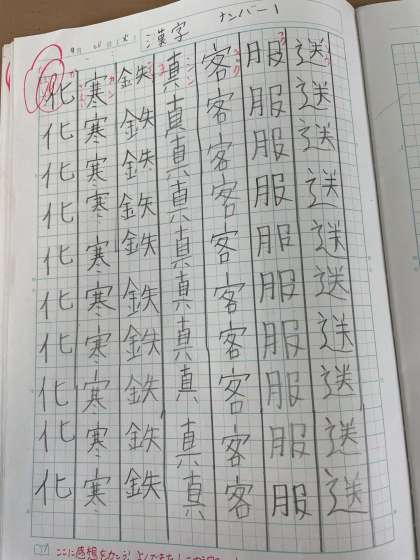 漢字 ナンバー1
送送送送送送送送送送
服服服服服服服服服服
客客客客客客客客客客
真真真真真真真真真真
鉄鉄鉄鉄鉄鉄鉄鉄鉄鉄
寒寒寒寒寒寒寒寒寒寒
化化化化化化化化化化